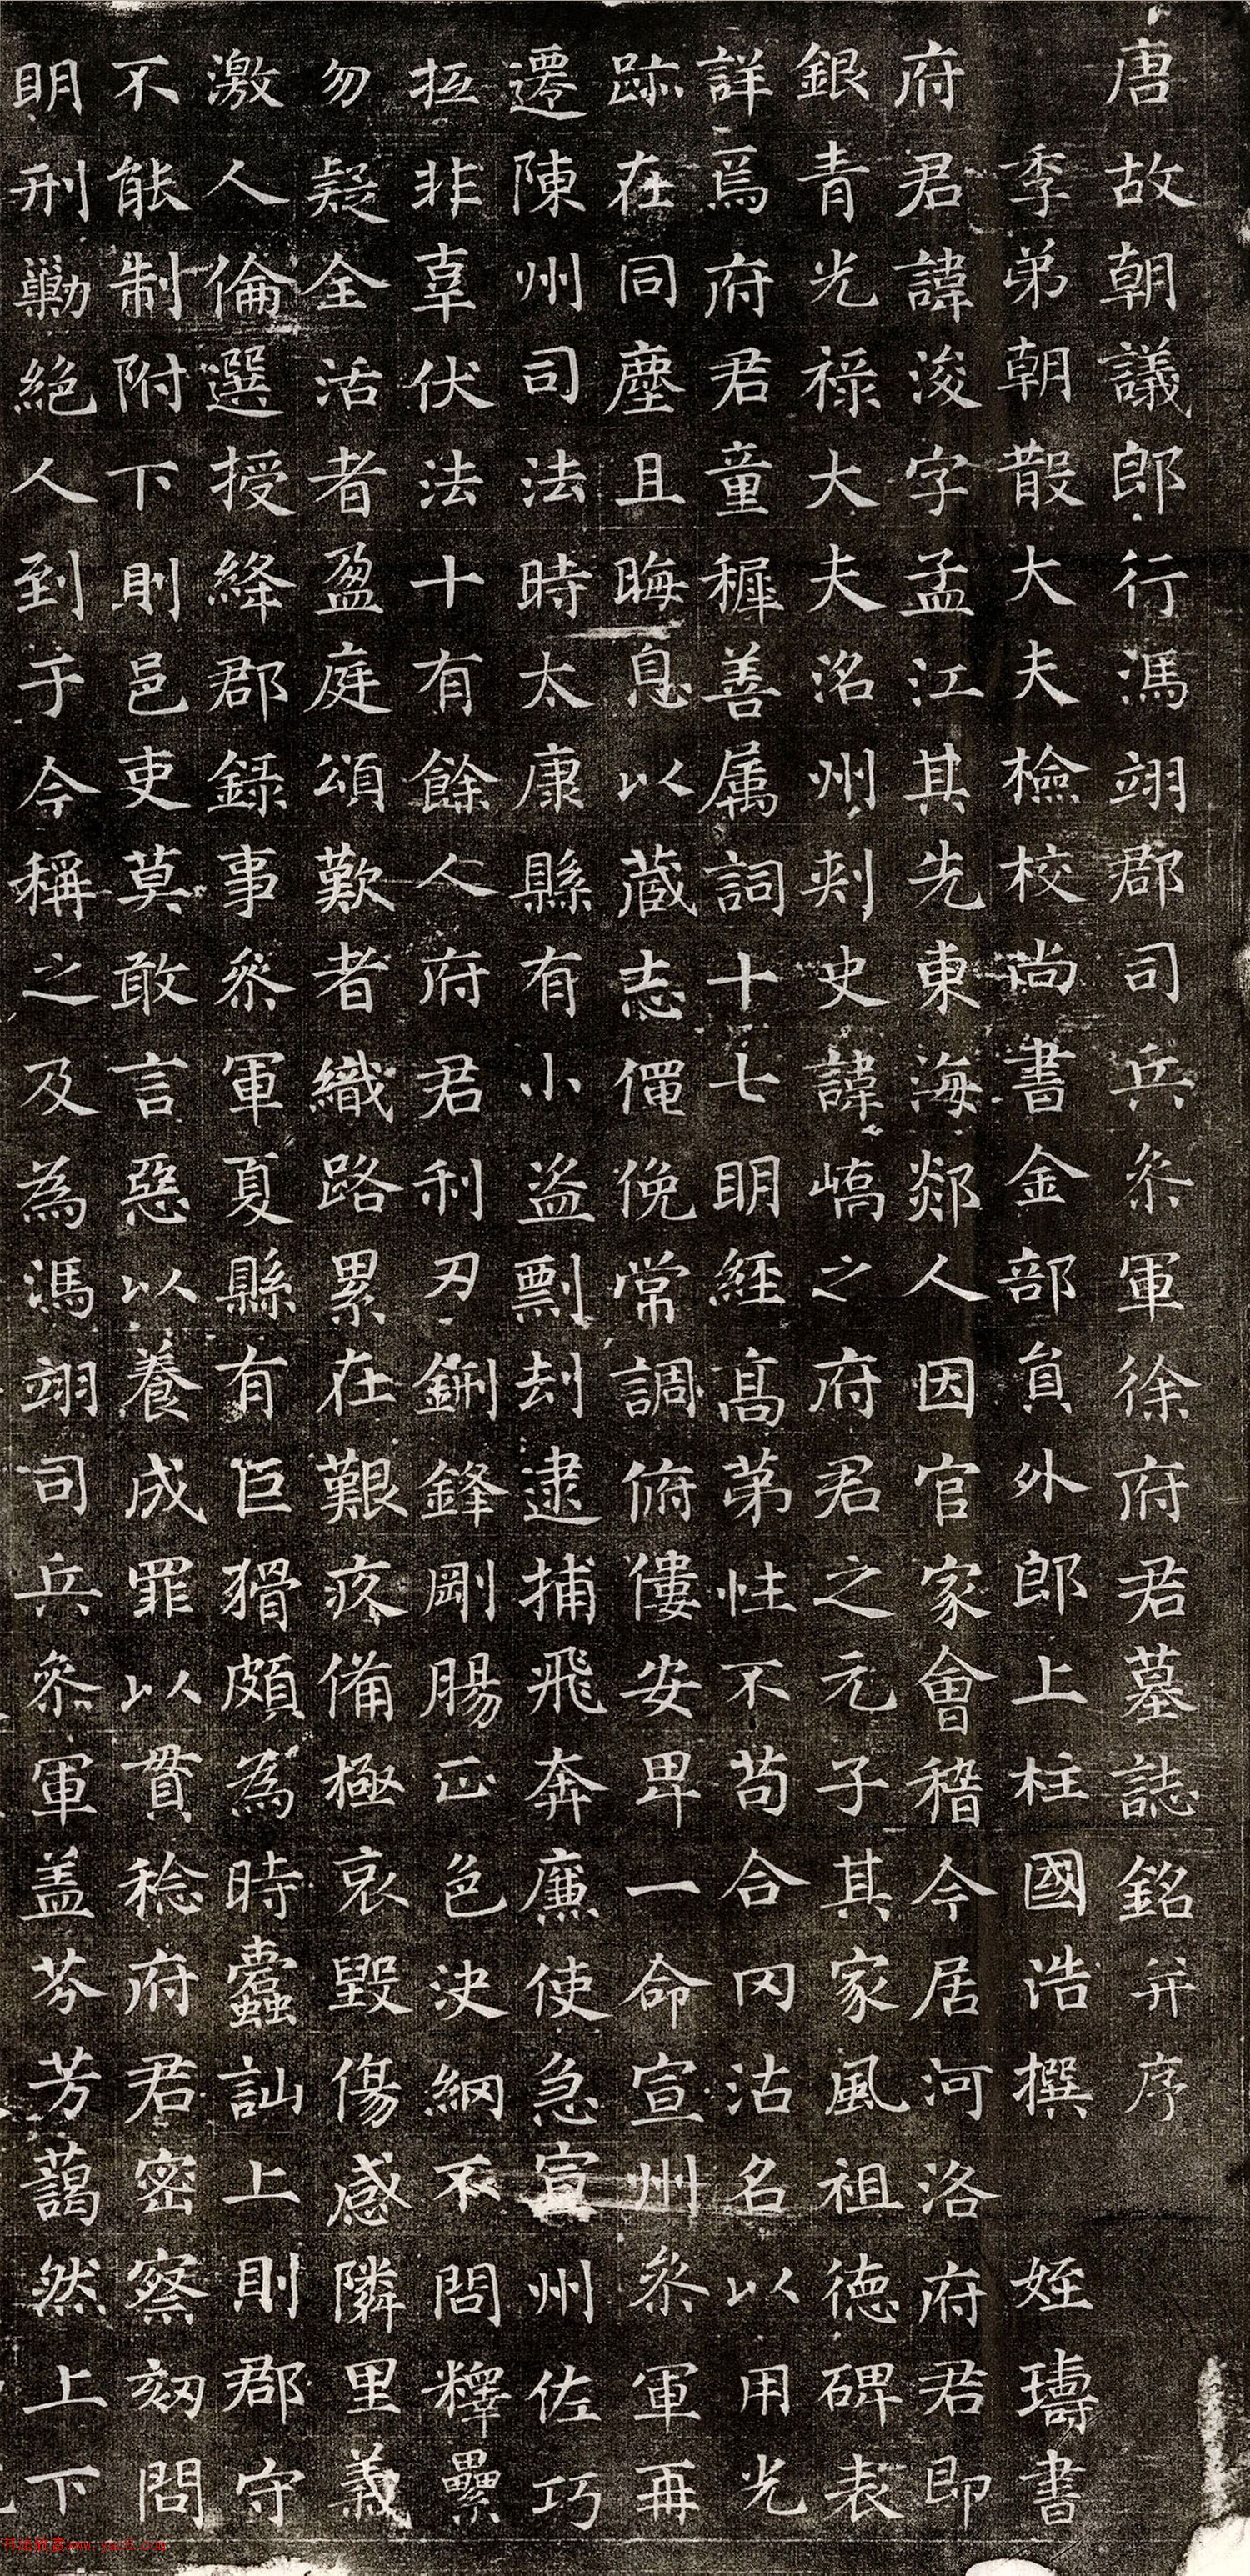 唐故朝議郎行馮翊郡司兵叅軍徐府君墓誌銘并序
季弟朝散大夫檢校尚書金部員外郎上柱國浩撰 姪璹書
府君諱浚字孟江其先東海郯人因官家會稽今居河洛府君即
銀青光祿大夫洺州刾史諱嶠之府君之元子其家風祖德碑表
詳焉府君童穉善属詞十七明經高苐性不苟合冈沽名以用光
跡在同塵且晦息以蔵志僶俛常調俯僂安卑一命宣州叅軍再
遷陳州司法時太康縣有小盜剽刦逮捕飛奔廉使急宣州佐巧
抂非辜伏法十有餘人府君利刃鉶鋒剛腸正色決網不問釋纍
勿疑全活者盈庭頌歎者織路累在艱疚備極哀毀傷感隣里義
激人倫選授絳郡錄事叅軍夏縣有巨猾頗為時蠹訕上則郡守
不能制附下則邑吏莫敢言惡以養成罪以貫稔府君密察刻問
明刑勦絕人到于今稱之及為馮翊司兵叅軍盖芬芳藹然上下